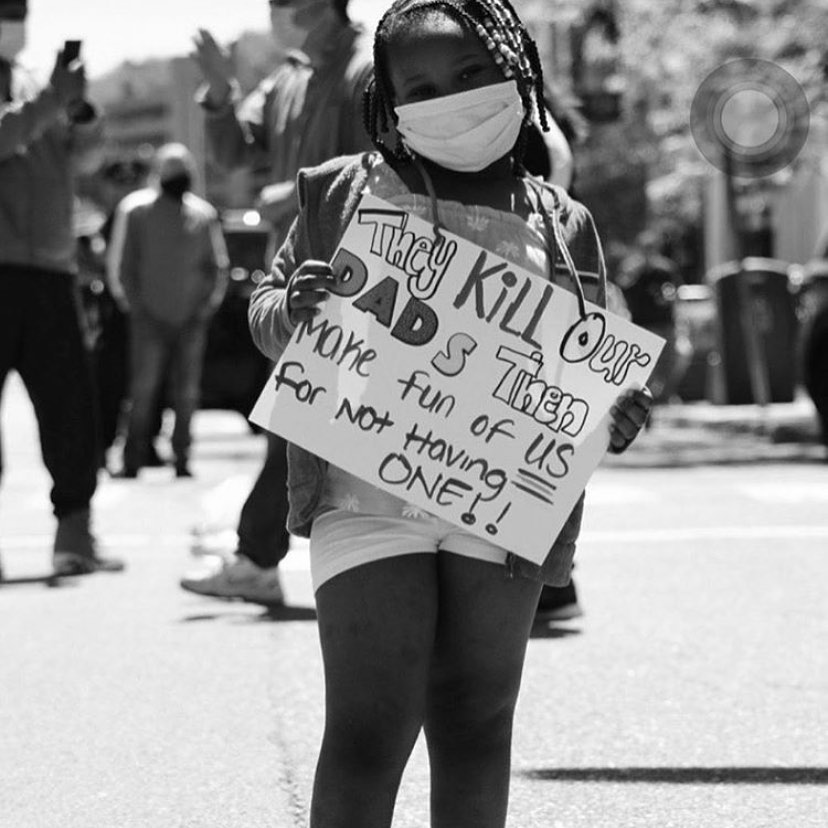 They Kill Our
DADS Then
Make fun of US
for Not Having
ONE!!